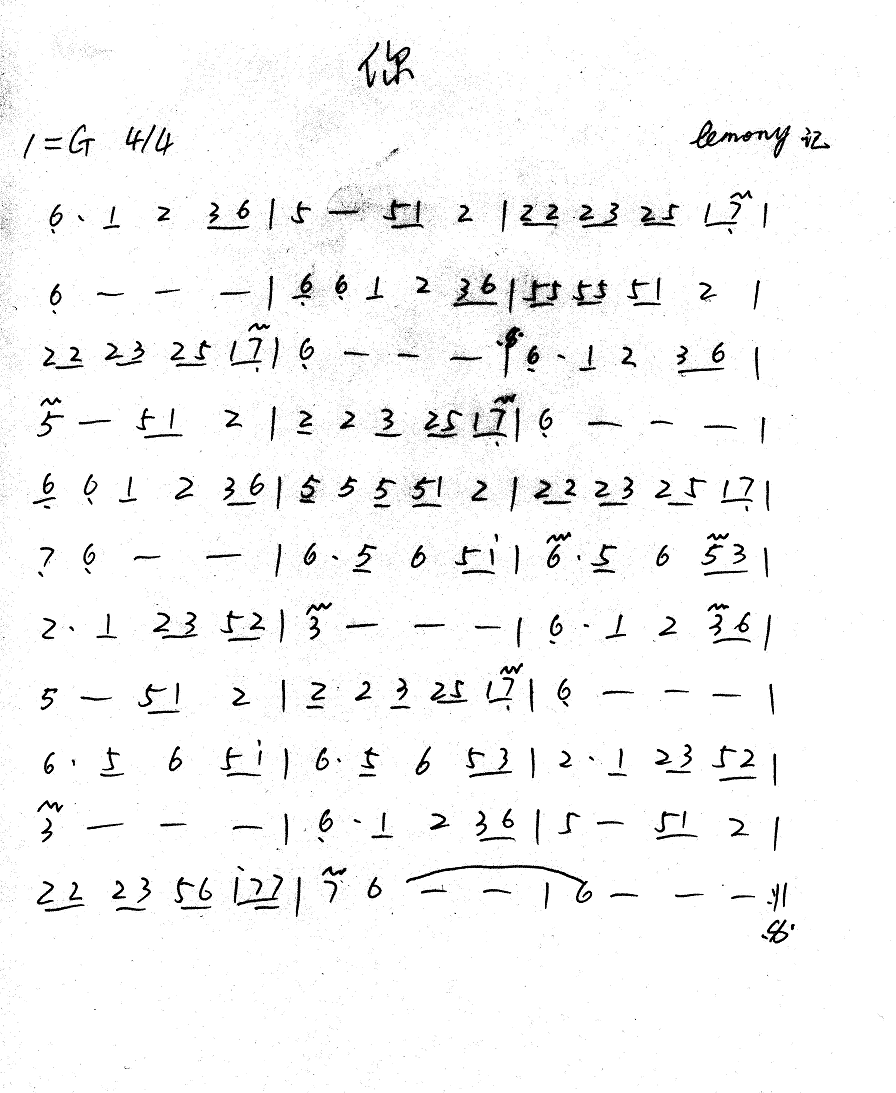 你
1=G 4/4 lemony 记
6· 1 2 36 | 5 — 51 2 | 22 23 25 17 |
6 — — — | 6 6 1 2 36 | 55 55 51 2 |
22 23 25 17 | 6 — — — | 6· 1 2 36 |
5 — 51 2 | 2 2 3 25 17 | 6 — — — |
6 6 1 2 36 | 5 5 5 51 2 | 22 23 25 17 |
7 6 — — | 6· 5 6 51 | 6· 5 6 53 |
2· 1 23 52 | 3 — — — | 6· 1 2 36 |
5 — 51 2 | 2 2 3 25 17 | 6 — — — |
6· 5 6 51 | 6· 5 6 53 | 2· 1 23 52 |
3 — — — | 6· 1 2 36 | 5 — 51 2 |
22 23 56 177 | 7 6 — — | 6 — — — ||